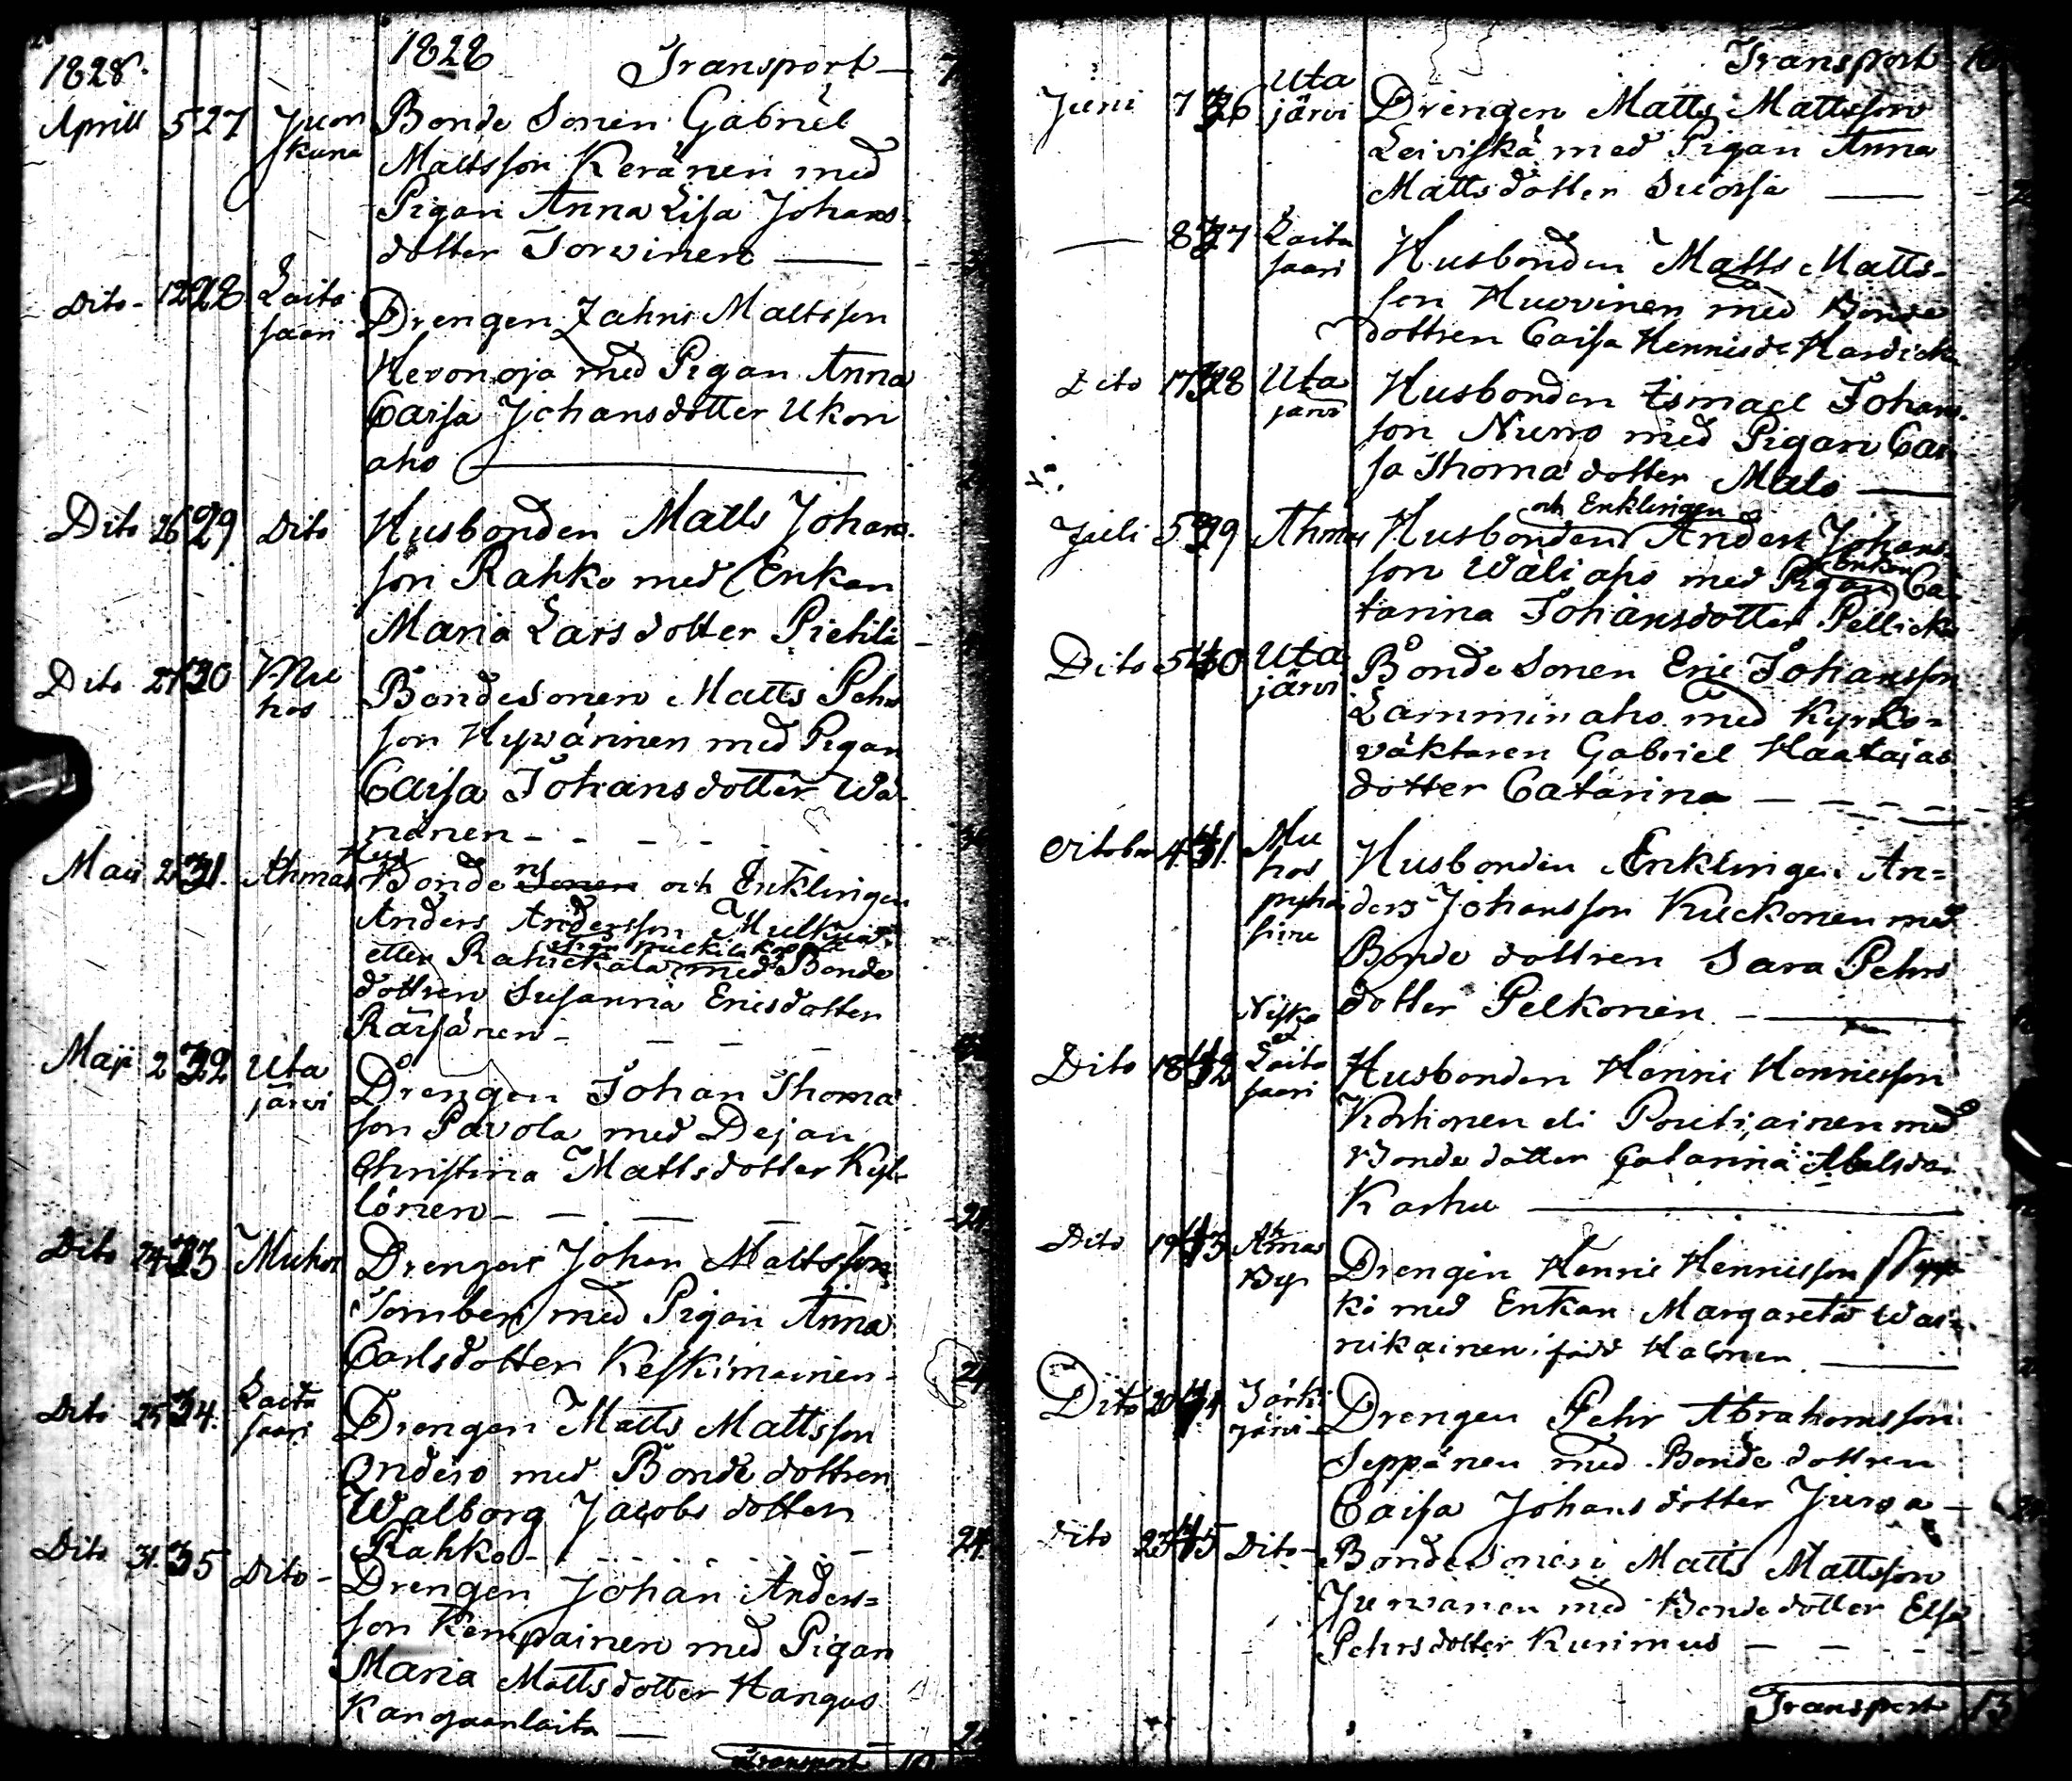 1828.
1828 Transport
Aprill 5 27 Juorkuna Bonde Sonen Gabriel
Mattsson Keränen med
Pigan Anna Lisa Johans-
dotter Torvinen
Dito 12 28 Laitasaari Drengen Zahris Mattsson
Hevonoja med Pigan Anna
Caisa Johansdotter Ukon
aho
Dito 26 29 Dito Husbonden Matts Johans-
son Rahko med Enkan
Maria Larsdotter Pietilä
Dito 27 30 Muhos Bondesonen Matts Pehrs
son Hyvärinen med Pigan
Caisa Johansdotter Wä-
nänen
Maii 2 31. Ahmas Bonde Sonen och Enklingen
Anders Andersson
eller med Bonde
dottren Susanna Ericsdotter
Räisänen
Maji 2 32 Utajärvi Drengen Johan Thoma
son Pavola med Dejan
Christina Mattsdotter Kyl-
lönen
Dito 24 33 Muhos Drengen Johan Mattsson
Tomberi med Pigan Anna
Carlsdotter Keskimainen 24
Dito 25 34. Laitasaari Drengen Matts Mattsson
Onderso med Bonde dottren
Walborg Jacobs dotter
Rahko 24
Dito 31. 35 Dito Drengen Johan Anders=
son Kempainen med Pigan
Maria Mattsdotter Hangus
Kangaanlaita
Transport
Transport
Juni 7 36 Utajärvi Drengen Matts Mattsson
Leiviskä med Pigan Anna
Mattsdotter Suorsa
8 37 Laitasaari Husbonden Matts Matts-
son Huovinen med Bonde
dottren Caisa Hennisd. Hardicka
Dito 17 38 Utajärvi Husbonden Esmael Johans-
son Nurro med Pigan Cai
sa Thoma dotter Malo
och Enklingen
Juli 5 39 Ahmas Husbonden Anders Johans-
son Waliaho med Pigan Enkan Ca-
tarina Johansdotter Pellicka
Dito 5 40 Utajärvi Bonde Sonen Eric Johansson
Lamminaho med Kyrko-
väktaren Gabriel Haatajas
dotter Catarina
October 4 41. Muhos Husbonden Enklingen An=
ders Johansson Kuckonen med
Bonde dottren Sara Pehrs
dotter Pelkonen
Dito 18 42 Niska Laitasaari Husbonden Henric Hennisson
Korhonen eli Poutiainen med
Bonde dotter Catarina Abelsdr
Karhu
Dito 19 43 Ahmas By Drengen Henric Hennisson
kö med Enkan Margareta Wai-
nikainen född Halonen
Dito 20 44 Sorkijärvi Drengen Pehr Abrahamsson
Seppänen med Bonde dottren
Caisa Johansdotter Jurva
Dito 25 45 Dito Bondesonen Matts Mattsson
Jurvanen med Bondedotter Elsa
Pehrsdotter Kurimus
Transport 13